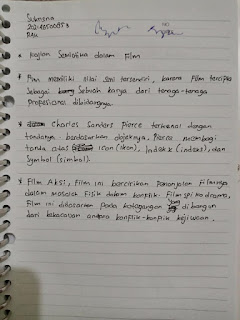 Sukmana
P2U
* Kajian Semiotika dalam Film
* Film memiliki nilai seni tersendiri, karena Film tercipta
sebagai sebuah karya dari tenaga-tenaga
Profesional dibidangnya.
* Charles Sanders Pierce terkenal dengan
tandanya. berdasarkan objeknya, Pierce membagi
tanda atas icon (ikon), Indekx (indeks), dan
Symbol (simbol).
* Film Aksi, Film ini bercirikan Penonjolan filmnya
dalam masalah Fisik dalam konflik. Film spikodrama,
Film ini didasarkan pada ketegangan Yang dibangun
dari kekacauan antara konflik-konflik kejiwaan.